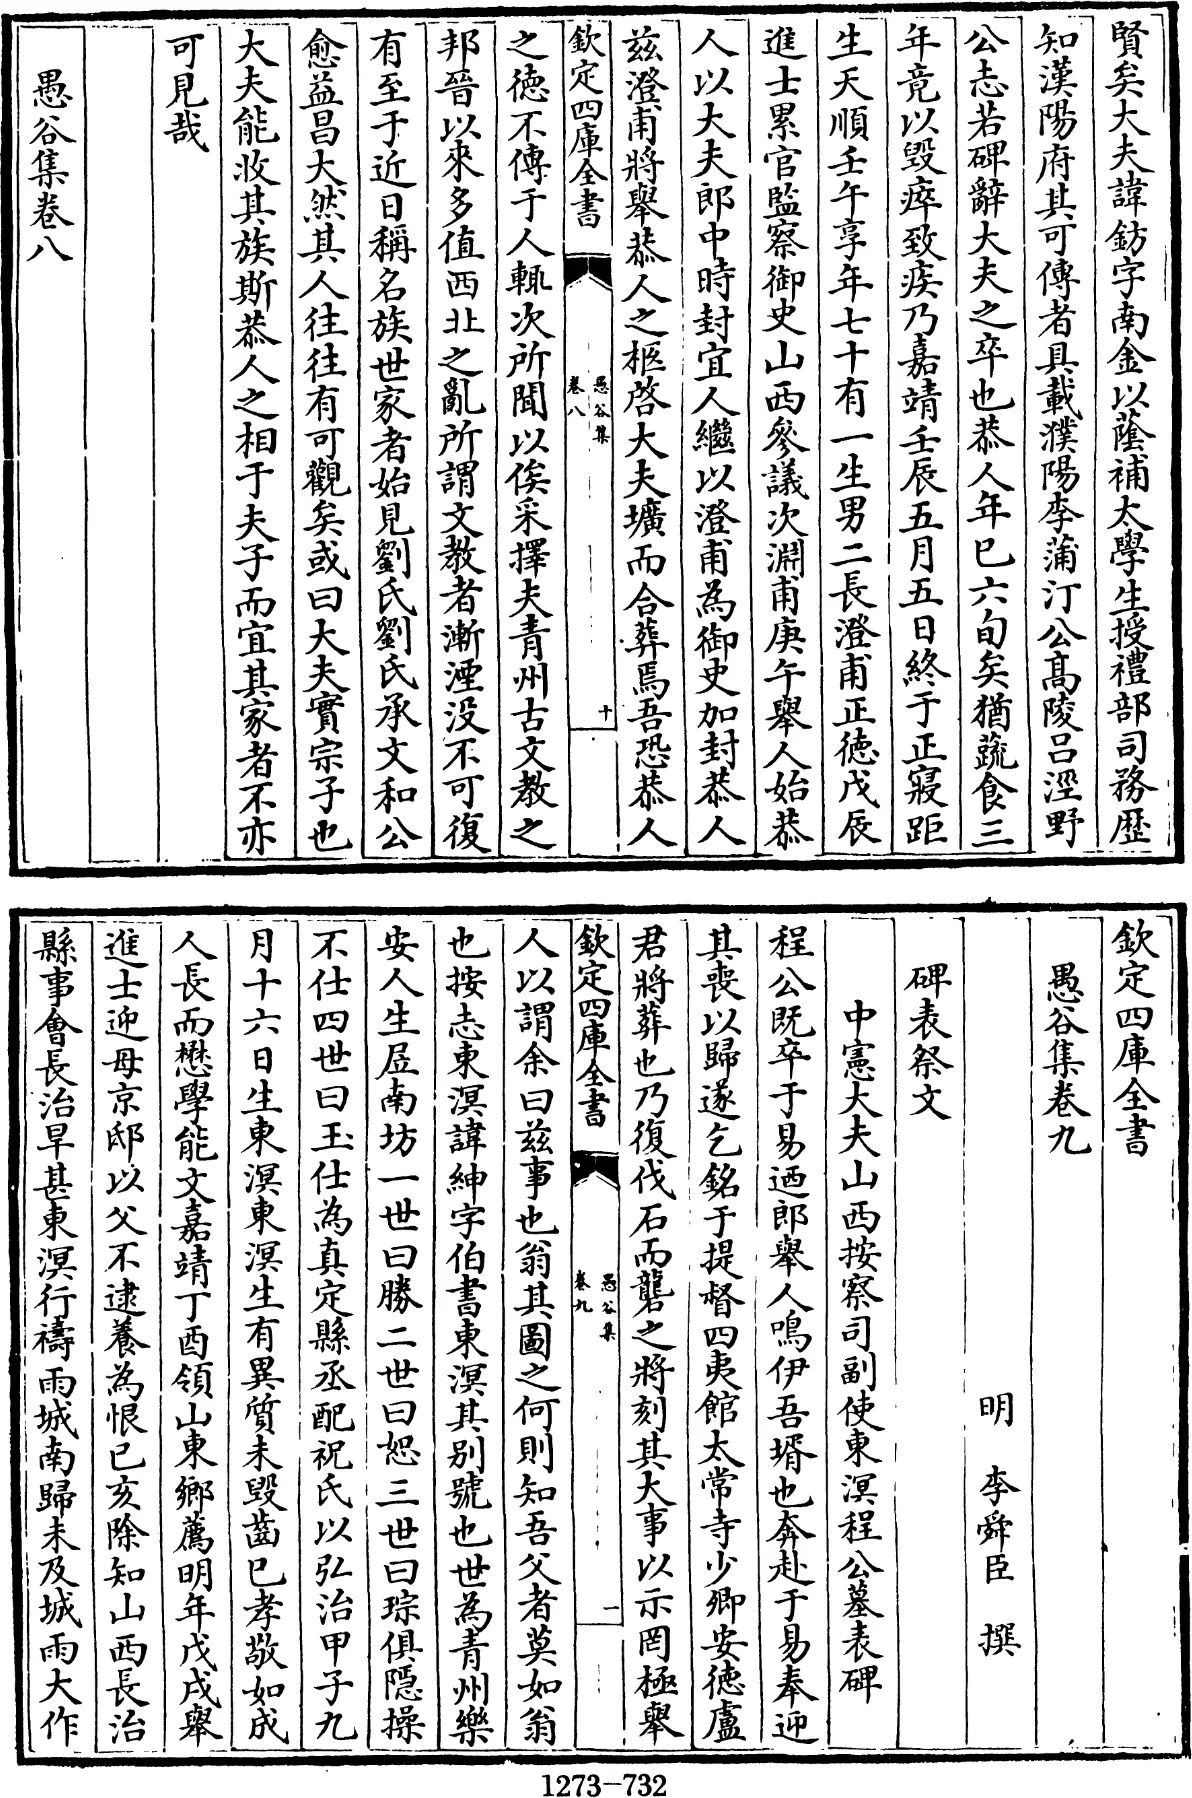 賢矣大夫諱鈁字南金以蔭補太學生授禮部司務歷
知漢陽府其可傳者具載濮陽李蒲汀公高陵呂涇野
公志若碑辭大夫之卒也恭人年巳六旬矣猶蔬食三
年竟以毀瘁致疾乃嘉靖壬辰五月五日終于正寢距
生天順壬午享年七十有一生男二長澄甫正德戊辰
進士累官監察御史山西參議次淵甫庚午舉人始恭
人以大夫郎中時封宜人繼以澄甫為御史加封恭人
茲澄甫將舉恭人之柩啓大夫壙而合葬焉吾恐恭人
欽定四庫全書
愚谷集
卷八
十
之德不傳于人輒次所聞以俟采擇夫青州古文教之
邦晉以來多值西北之亂所謂文教者漸湮没不可復
有至于近日稱名族世家者始見劉氏劉氏承文和公
愈益昌大然其人往往有可觀矣或曰大夫實宗子也
大夫能收其族斯恭人之相于夫子而宜其家者不亦
可見哉
愚谷集卷八
欽定四庫全書
愚谷集卷九
明 李舜臣 撰
碑表祭文
中憲大夫山西按察司副使東溟程公墓表碑
程公既卒于易迺郎舉人鳴伊吾壻也奔赴于易奉迎
其喪以歸遂乞銘于提督四夷館太常寺少卿安德盧
君將葬也乃復伐石而礱之將刻其大事以示罔極舉
欽定四庫全書
愚谷集
卷九
一
人以謂余曰茲事也翁其圖之何則知吾父者莫如翁
也按志東溟諱紳字伯書東溟其别號也世為青州樂
安人生居南坊一世曰勝二世曰恕三世曰琮俱隱操
不仕四世曰玉仕為真定縣丞配祝氏以弘治甲子九
月十六日生東溟東溟生有異質未毀齒巳孝敬如成
人長而懋學能文嘉靖丁酉領山東鄉薦明年戊戌舉
進士迎母京邸以父不逮養為恨已亥除知山西長治
縣事會長治旱甚東溟行禱雨城南歸未及城雨大作
1273-732